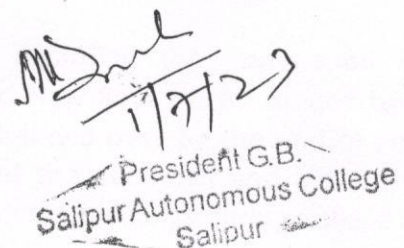 1/7/23
President G.B.
Salipur Autonomous College
Salipur